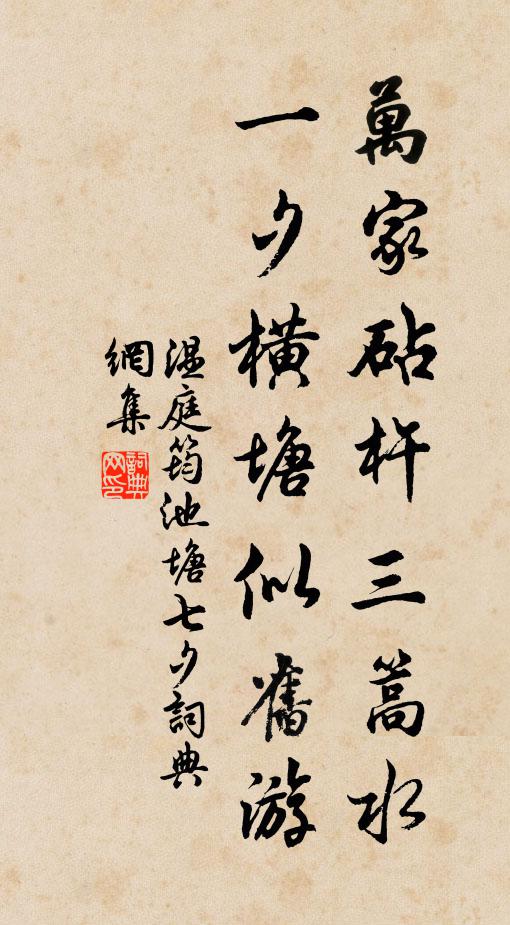 萬家砧杵三篙水
一夕橫塘似舊游
温庭筠池塘七夕詞典
網集
詞典網印